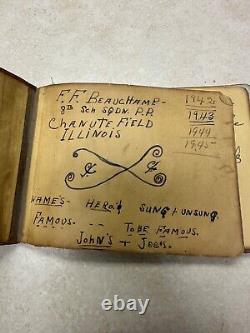 F. F. BEAUCHAMP -
8th Sch SQDN. P.P.
CHANUTE FIELD
ILLINOIS
1942
1943
1944
1945
NAME'S - HERO'S SUNG + UNSUNG
FAMOUS. - - TO BE FAMOUS.
JOHN'S + JOE'S.